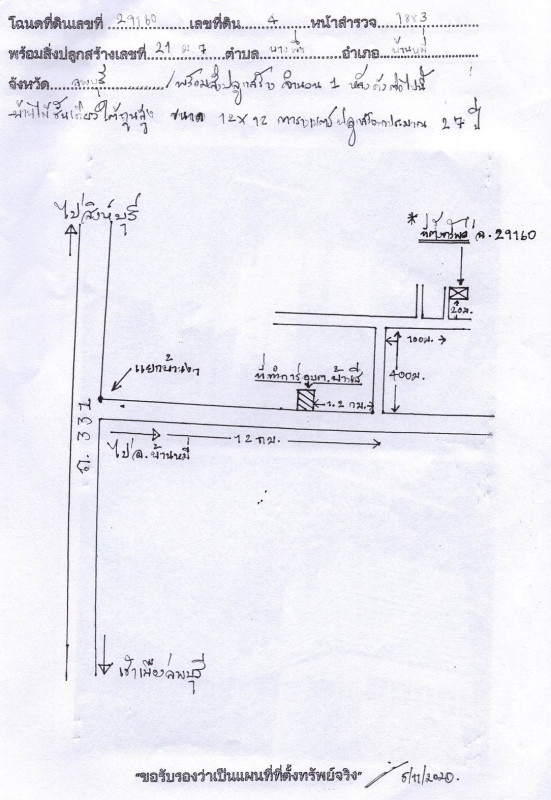 โฉนดที่ดินเลขที่ 29160 เลขที่ดิน 4 หน้าสำรวจ 1883
พร้อมสิ่งปลูกสร้างเลขที่ 21 ม.7 ตำบล อำเภอ บ้านหมี่
จังหวัด ลพบุรี /พร้อมสิ่งปลูกสร้าง จำนวน 1 หลังดังต่อไปนี้
-บ้านไม้ชั้นเดียวใต้ถุนสูง ขนาด 12x12 ตารางเมตร ปลูกสร้างประมาณ 27 ปี
ไปสิงห์บุรี
* ที่ตั้งทรัพย์ ฉ.29160
20ม.
100ม.
แยก
ที่ทำการ อบต.
400ม.
1.2 กม.
12 กม.
ไป อ.บ้านหมี่
ถ. 331
เข้าเมืองลพบุรี
"ขอรับรองว่าเป็นแผนที่ที่ตั้งทรัพย์จริง" 6/11/2020.